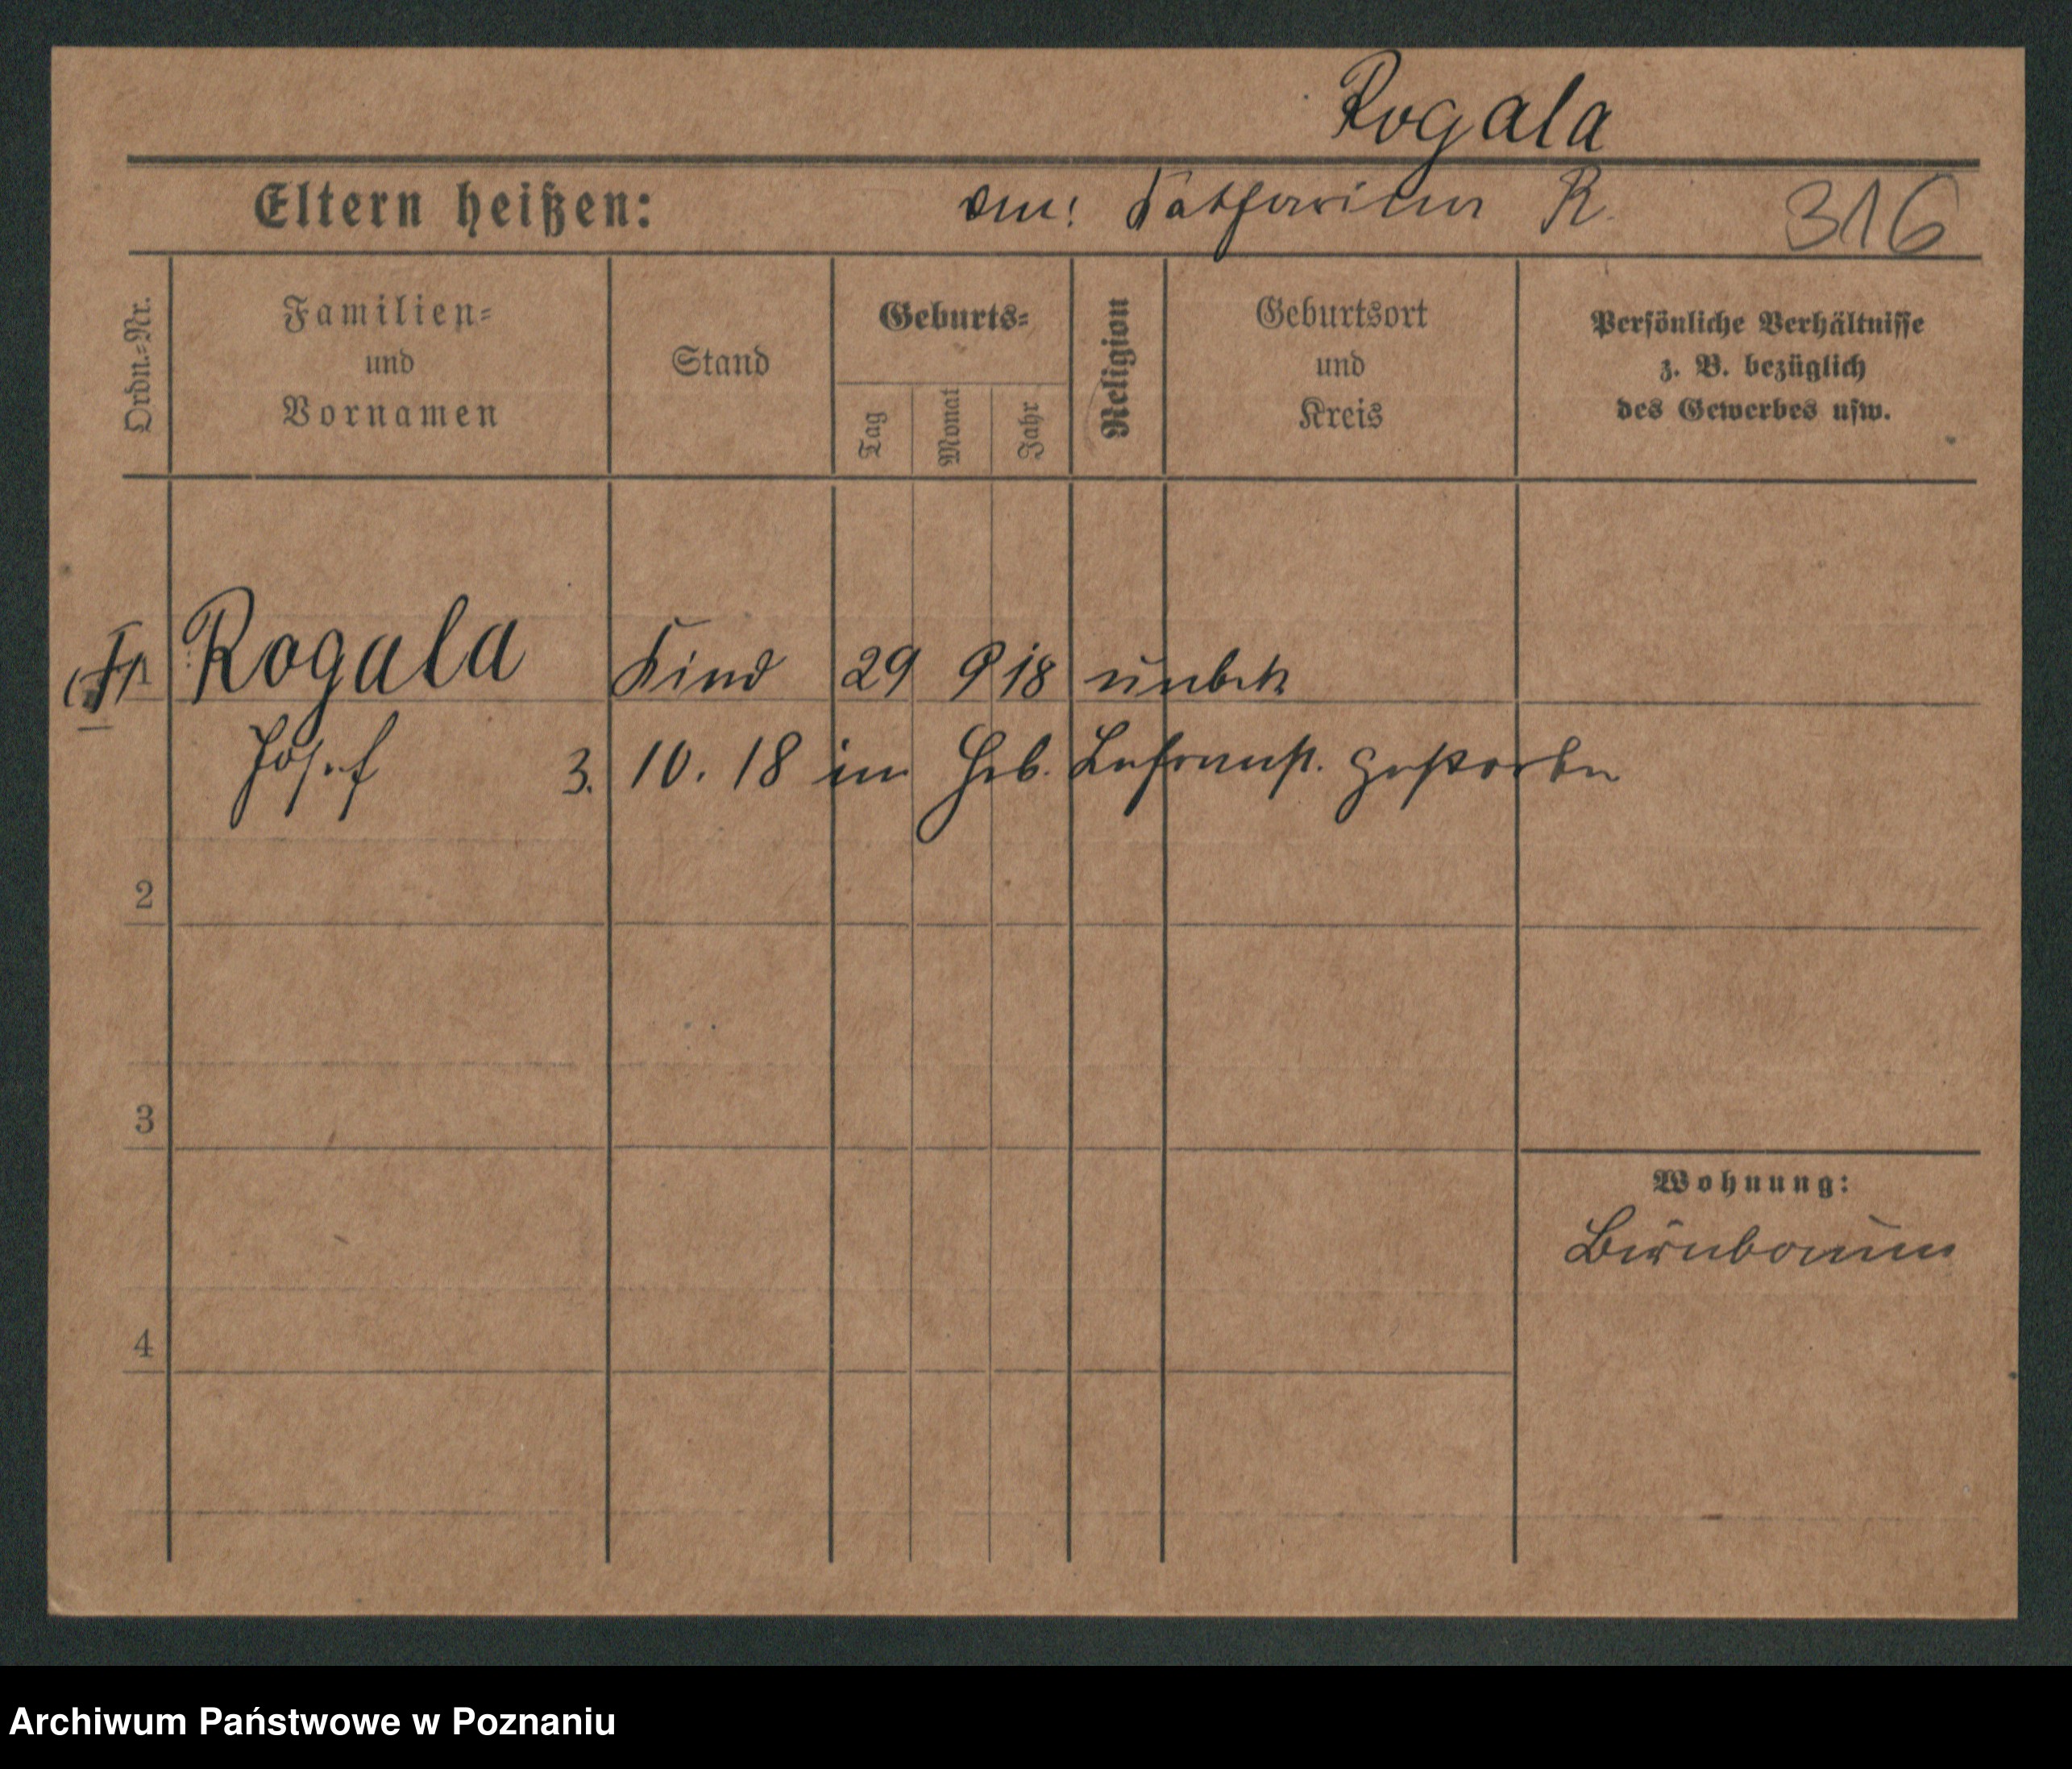 Rogala
Eltern heißen: Katharina R. 316
Ordn.=Nr.
Familien=
und
Vornamen
Stand
Geburts=
Tag
Monat
Jahr
Religion
Geburtsort
und
Kreis
Persönliche Verhältnisse
z. B. bezüglich
des Gewerbes usw.
1 Rogala Kind 29 9 18 unbek
Josef 3. 10. 18 in Heb. Lehranst. gestorben
2
3
Wohnung:
Birnbaum
4
Archiwum Państwowe w Poznaniu